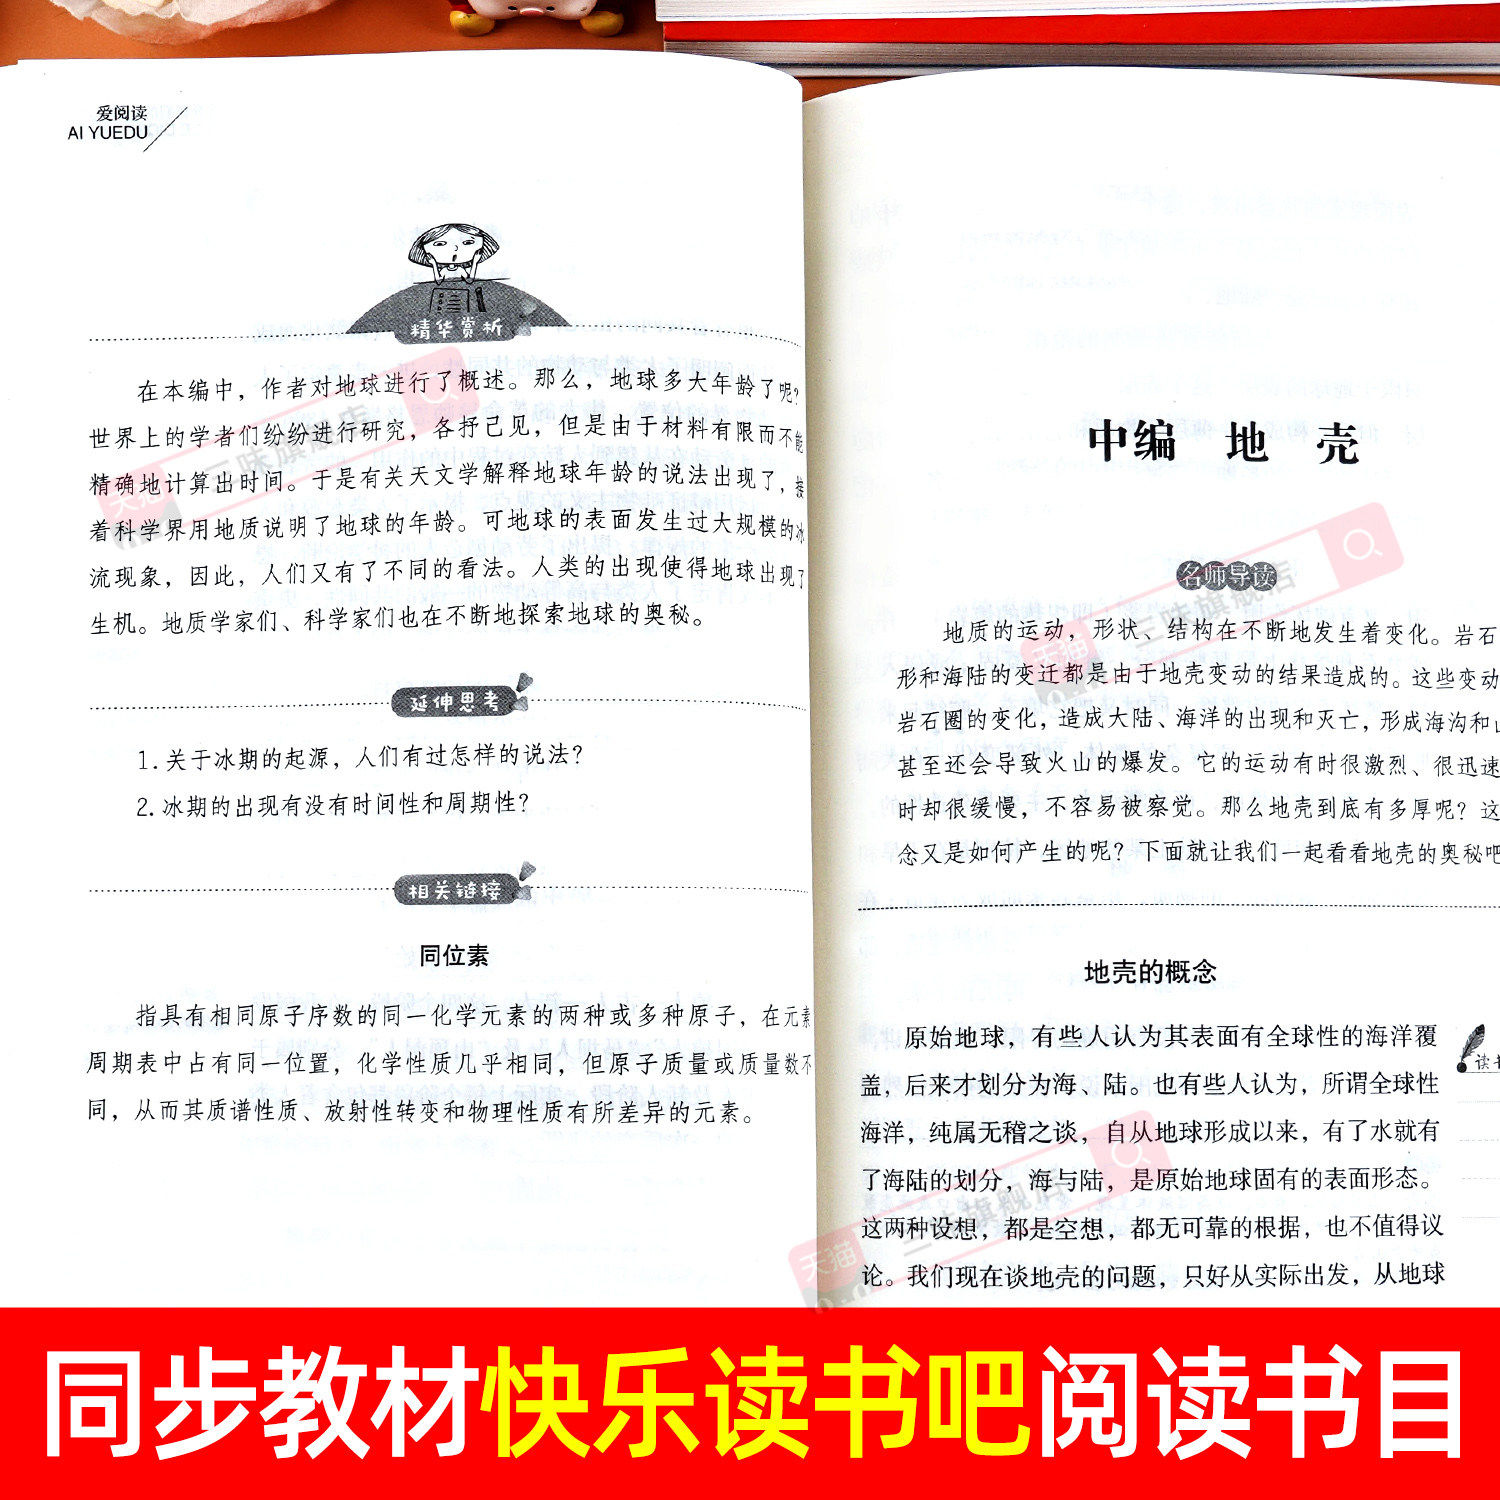 爱阅读
AI YUEDU
精华赏析
在本编中，作者对地球进行了概述。那么，地球多大年龄了呢？
世界上的学者们纷纷进行研究，各抒己见，但是由于材料有限而不能
精确地计算出时间。于是有关天文学解释地球年龄的说法出现了，接
着科学界用地质说明了地球的年龄。可地球的表面发生过大规模的冰
流现象，因此，人们又有了不同的看法。人类的出现使得地球出现了
生机。地质学家们、科学家们也在不断地探索地球的奥秘。
延伸思考
1.关于冰期的起源，人们有过怎样的说法？
2.冰期的出现有没有时间性和周期性？
相关链接
同位素
指具有相同原子序数的同一化学元素的两种或多种原子，在元素
周期表中占有同一位置，化学性质几乎相同，但原子质量或质量数不
同，从而其质谱性质、放射性转变和物理性质有所差异的元素。
中编 地 壳
名师导读
地质的运动，形状、结构在不断地发生着变化。岩石
形和海陆的变迁都是由于地壳变动的结果造成的。这些变动
岩石圈的变化，造成大陆、海洋的出现和灭亡，形成海沟和山
甚至还会导致火山的爆发。它的运动有时很激烈、很迅速
时却很缓慢，不容易被察觉。那么地壳到底有多厚呢？这
念又是如何产生的呢？下面就让我们一起看看地壳的奥秘吧
地壳的概念
原始地球，有些人认为其表面有全球性的海洋覆
盖，后来才划分为海、陆。也有些人认为，所谓全球性
海洋，纯属无稽之谈，自从地球形成以来，有了水就有
了海陆的划分，海与陆，是原始地球固有的表面形态。
这两种设想，都是空想，都无可靠的根据，也不值得议
论。我们现在谈地壳的问题，只好从实际出发，从地球
读书
天猫 三味旗舰店
天猫 三味旗舰店
天猫 三味旗舰店
同步教材快乐读书吧阅读书目